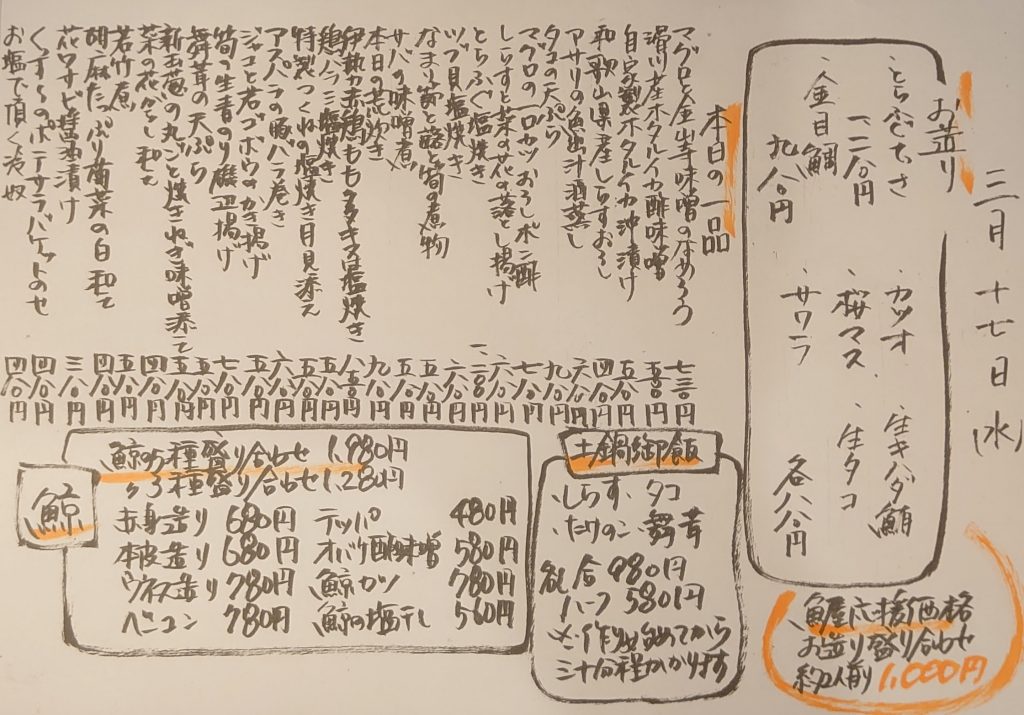 三月十七日(水)
お造り
・とらふぐてっさ
・カツオ
・生キハダ鮪
・金目鯛
九八〇円
・桜マス
・生タコ
・サワラ
各八八〇円
魚屋応援価格
お造り盛り合わせ
約2人前 1,000円
本日の一品
マグロと金山寺味噌のなめろう 七三〇円
滑川産ホタルイカ酢味噌 五八〇円
自家製ホタルイカ沖漬け 五八〇円
和歌山県産しらすおろし 四八〇円
アサリの魚出汁酒蒸し 六八〇円
タコの天ぷら 九八〇円
マグロの一口カツおろしポン酢 七八〇円
しらすと菜の花の落とし揚げ 六八〇円
とらふぐ塩焼き 一二八〇円
ツブ貝塩焼き 六八〇円
なまり節と蕗と筍の煮物 五八〇円
サバの味噌煮 五八〇円
本日の荒炊き 九八〇円
赤鶏ももタタキ塩焼き
鶏ハラミ塩焼き 五八〇円
特製つくねの塩焼き月見添え
アスパラの豚バラ巻き 六八〇円
ジャコと若ゴボウのかき揚げ 五八〇円
筍の生青のり磯辺揚げ 七八〇円
舞茸の天ぷら 五八〇円
新玉葱の丸ごと焼きねぎ味噌添え 五八〇円
菜の花からし和え 四八〇円
若竹煮 五八〇円
胡麻たっぷり菊菜の白和え 四八〇円
花ワサビ醤油漬け 三八〇円
ポテサラバケットのせ 四八〇円
お塩で頂く冷奴 四八〇円
土鍋御飯
・しらす・タコ
・たけのこ・舞茸
各一合 980円
ハーフ 580円
※作り始めてから
三十分程かかります
鯨
鯨の5種盛り合わせ 1,980円
〃3種盛り合わせ 1,280円
赤身造り 680円 テッパ 480円
本皮造り 680円 オバケ酢味噌 580円
ウネス造り 780円 鯨カツ 780円
ベーコン 780円 鯨の塩干し 560円